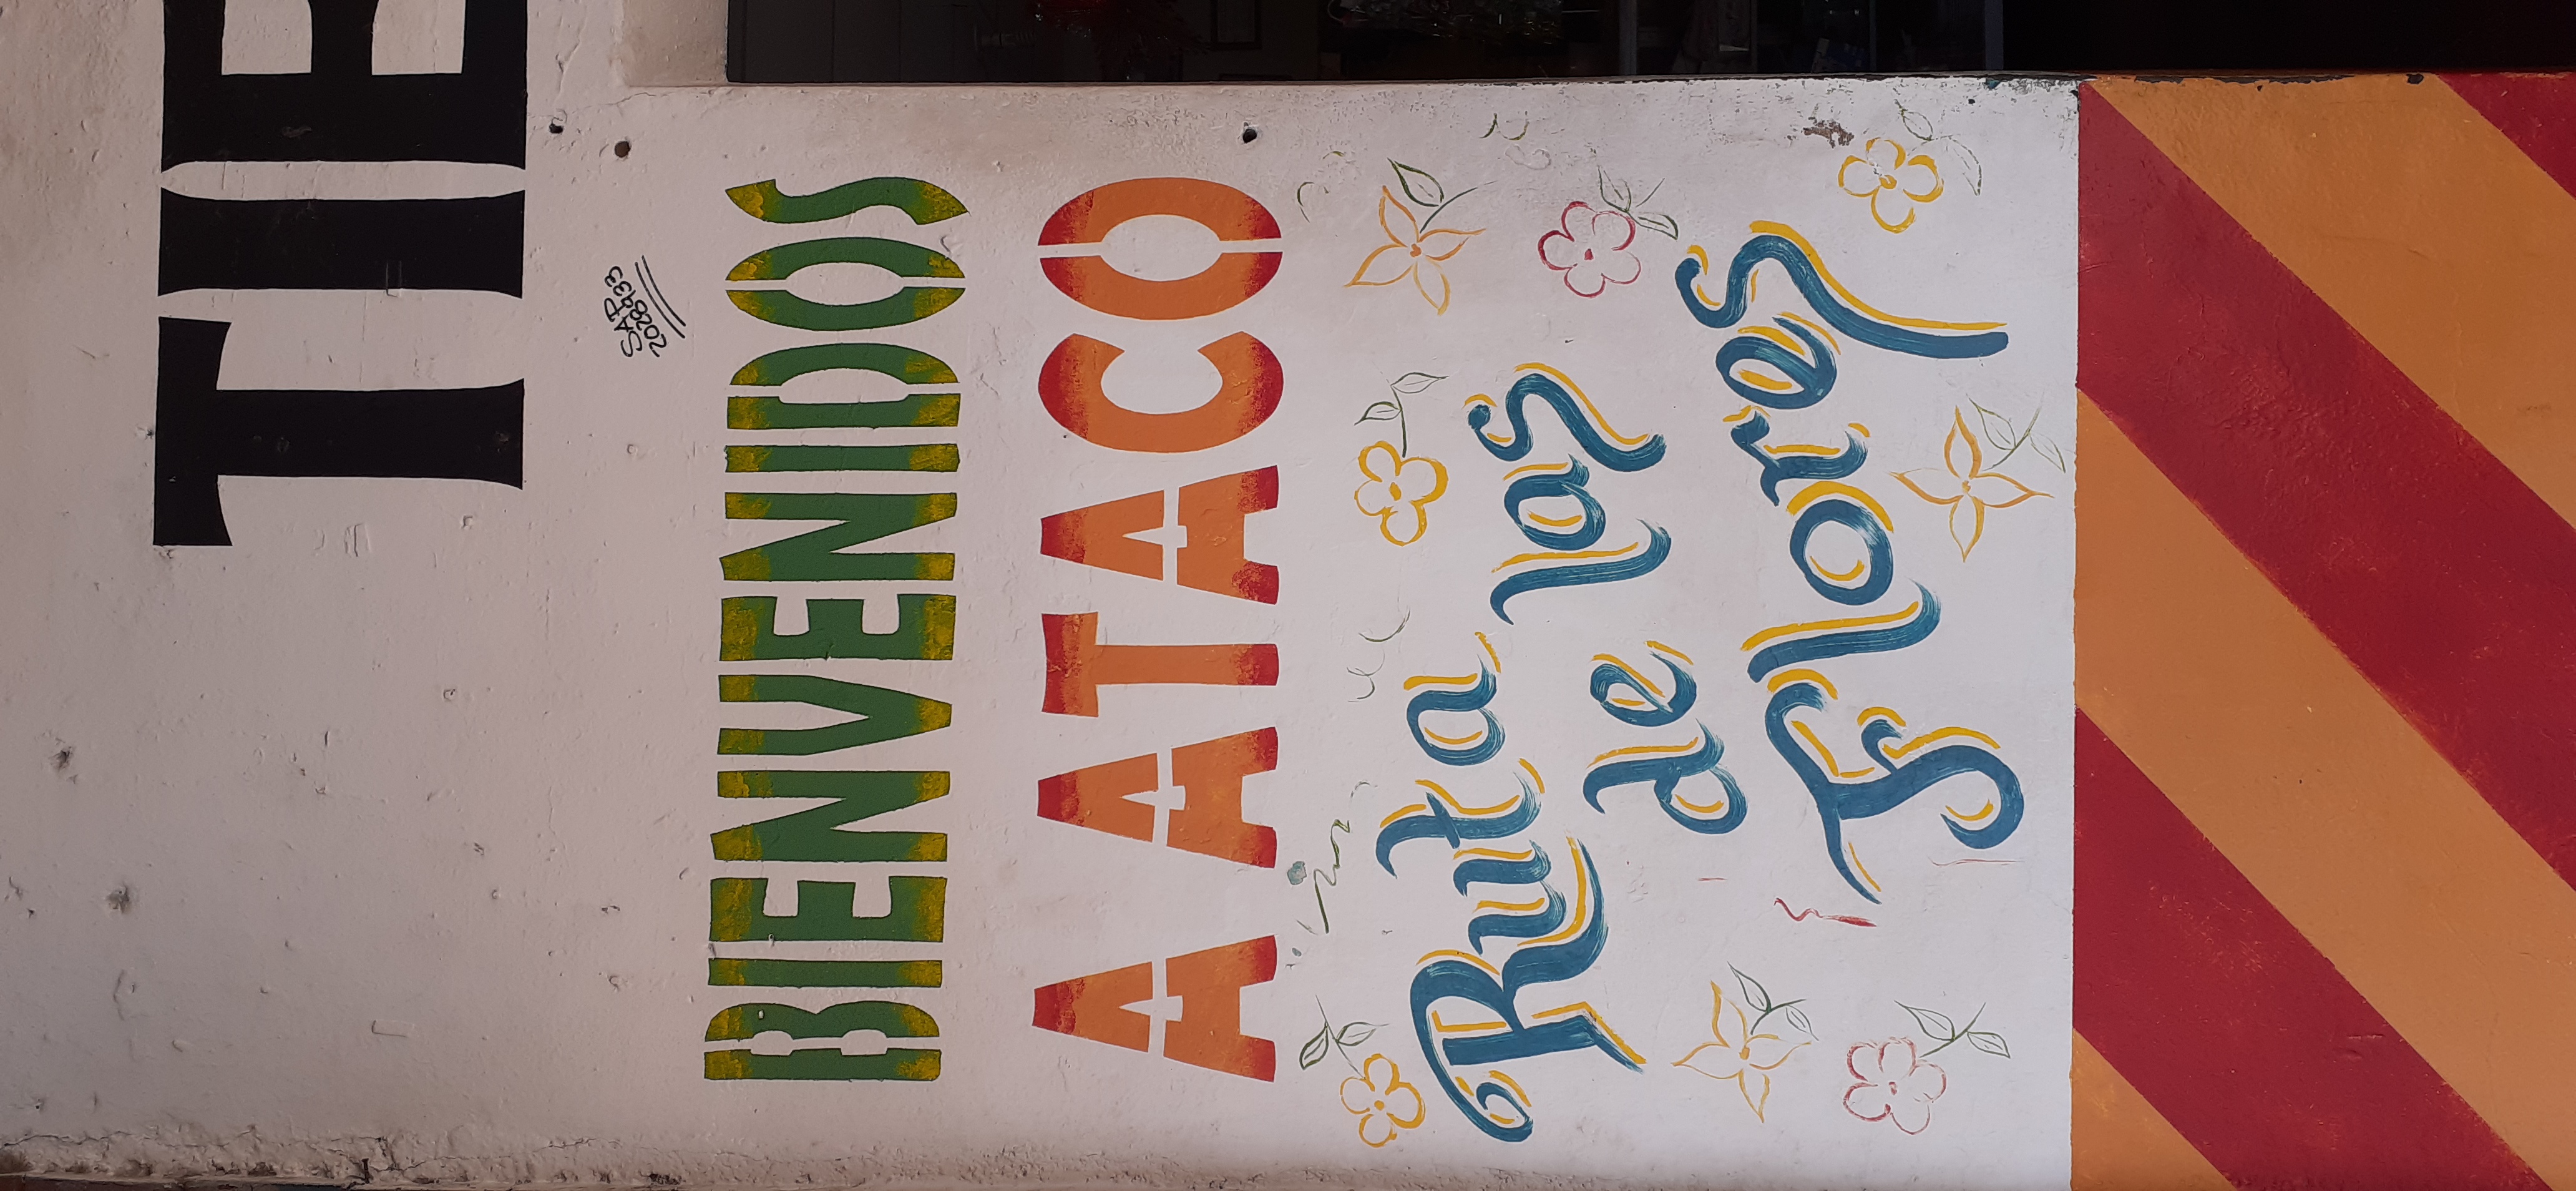 TIE
SAP
2028933
BIENVENIDOS
A ATACO
Ruta
de las
Flores